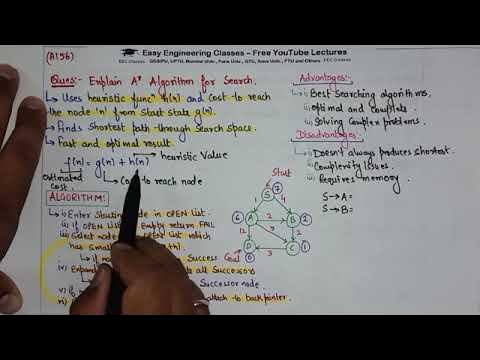 (AI56)
Easy Engineering Classes – Free YouTube Lectures
EEC Classes GGSIPU, UPTU, Mumbai Univ., Pune Univ., GTU, Anna Univ., PTU and Others EEC Classes
Ques:- Explain A* Algorithm for Search.
Uses heuristic func" h(n) and Cost to reach
the node 'n' from start state g(n).
Finds shortest path through Search space.
Fast and optimal result.
f(n) = g(n) + h(n) heuristic Value
Estimated Cost.
Cost to reach node
ALGORITHM:-
i) Enter Starting node in OPEN list.
ii) If OPEN list Empty return FAIL
iii) Select node OPEN list which
has Small
Success.
iv) Expand all Successors
v) if Successor node.
vi) attach to backpointer.
Advantages:-
i) Best Searching algorithms.
ii) optimal and Complete.
iii) Solving Complex problems.
Disadvantages:-
i) Doesn't always produces shortest.
ii) Complexity Issues.
iii) Requires memory.
S→A=
S→B=
Start
S 7
1 4
6 A 2 B 2
12 2
D 3 C 1
Goal
0